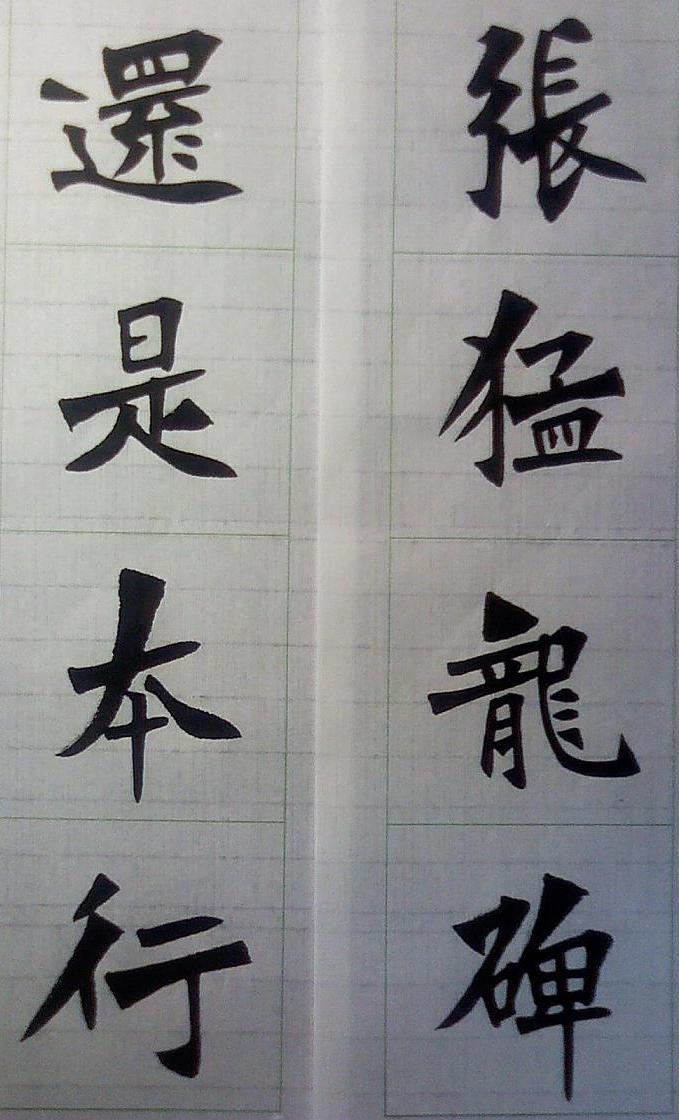 張猛龍碑
還是本行